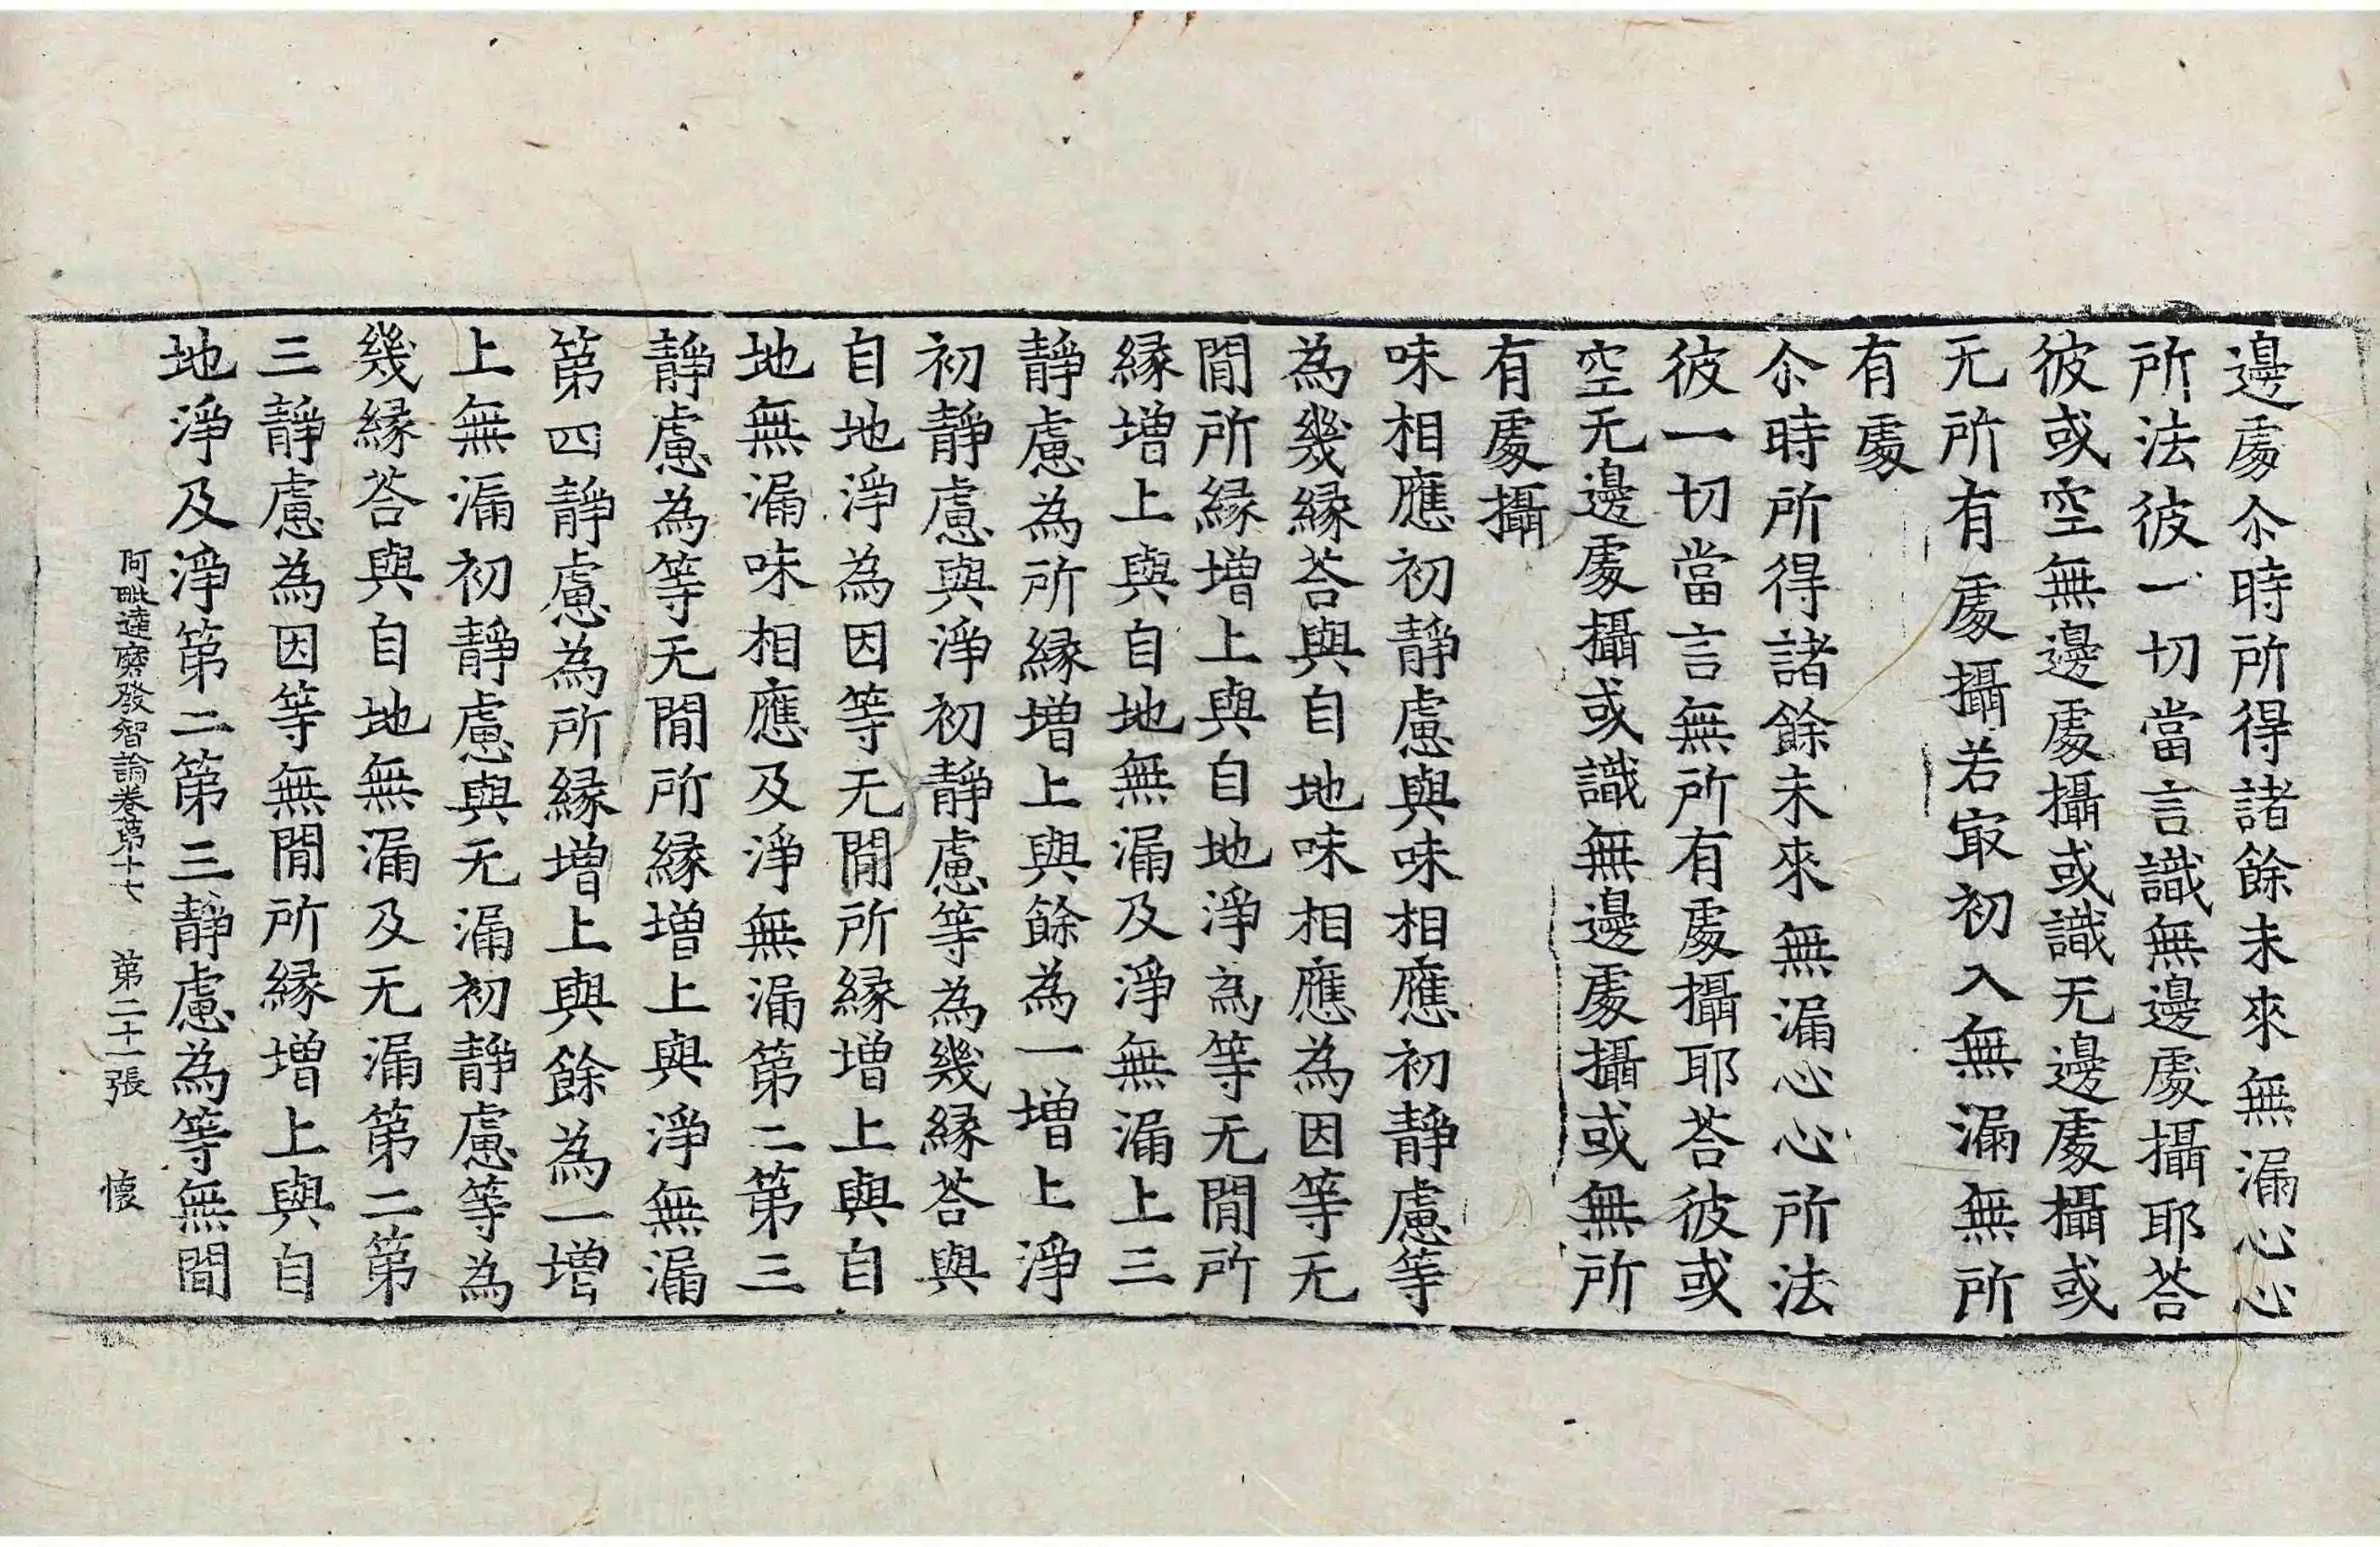 邊處尒時所得諸餘未來無漏心心
所法彼一切當言識無邊處攝耶荅
彼或空無邊處攝或識无邊處攝或
无所有處攝若㝡初入無漏無所
有處
尒時所得諸餘未來無漏心心所法
彼一切當言無所有處攝耶荅彼或
空无邊處攝或識無邊處攝或無所
有處攝
味相應初靜慮與味相應初靜慮等
為幾緣荅與自地味相應為因等无
間所緣增上與自地淨為等无間所
緣增上與自地無漏及淨無漏上三
靜慮為所緣增上與餘為一增上淨
初靜慮與淨初靜慮等為幾緣荅與
自地淨為因等无間所緣增上與自
地無漏味相應及淨無漏第二第三
靜慮為等无間所緣增上與淨無漏
第四靜慮為所緣增上與餘為一增
上無漏初靜慮與无漏初靜慮等為
幾緣荅與自地無漏及无漏第二第
三靜慮為因等無間所緣增上與自
地淨及淨第二第三靜慮為等無間
阿毗達磨發智論卷第十七 第二十一張 懷